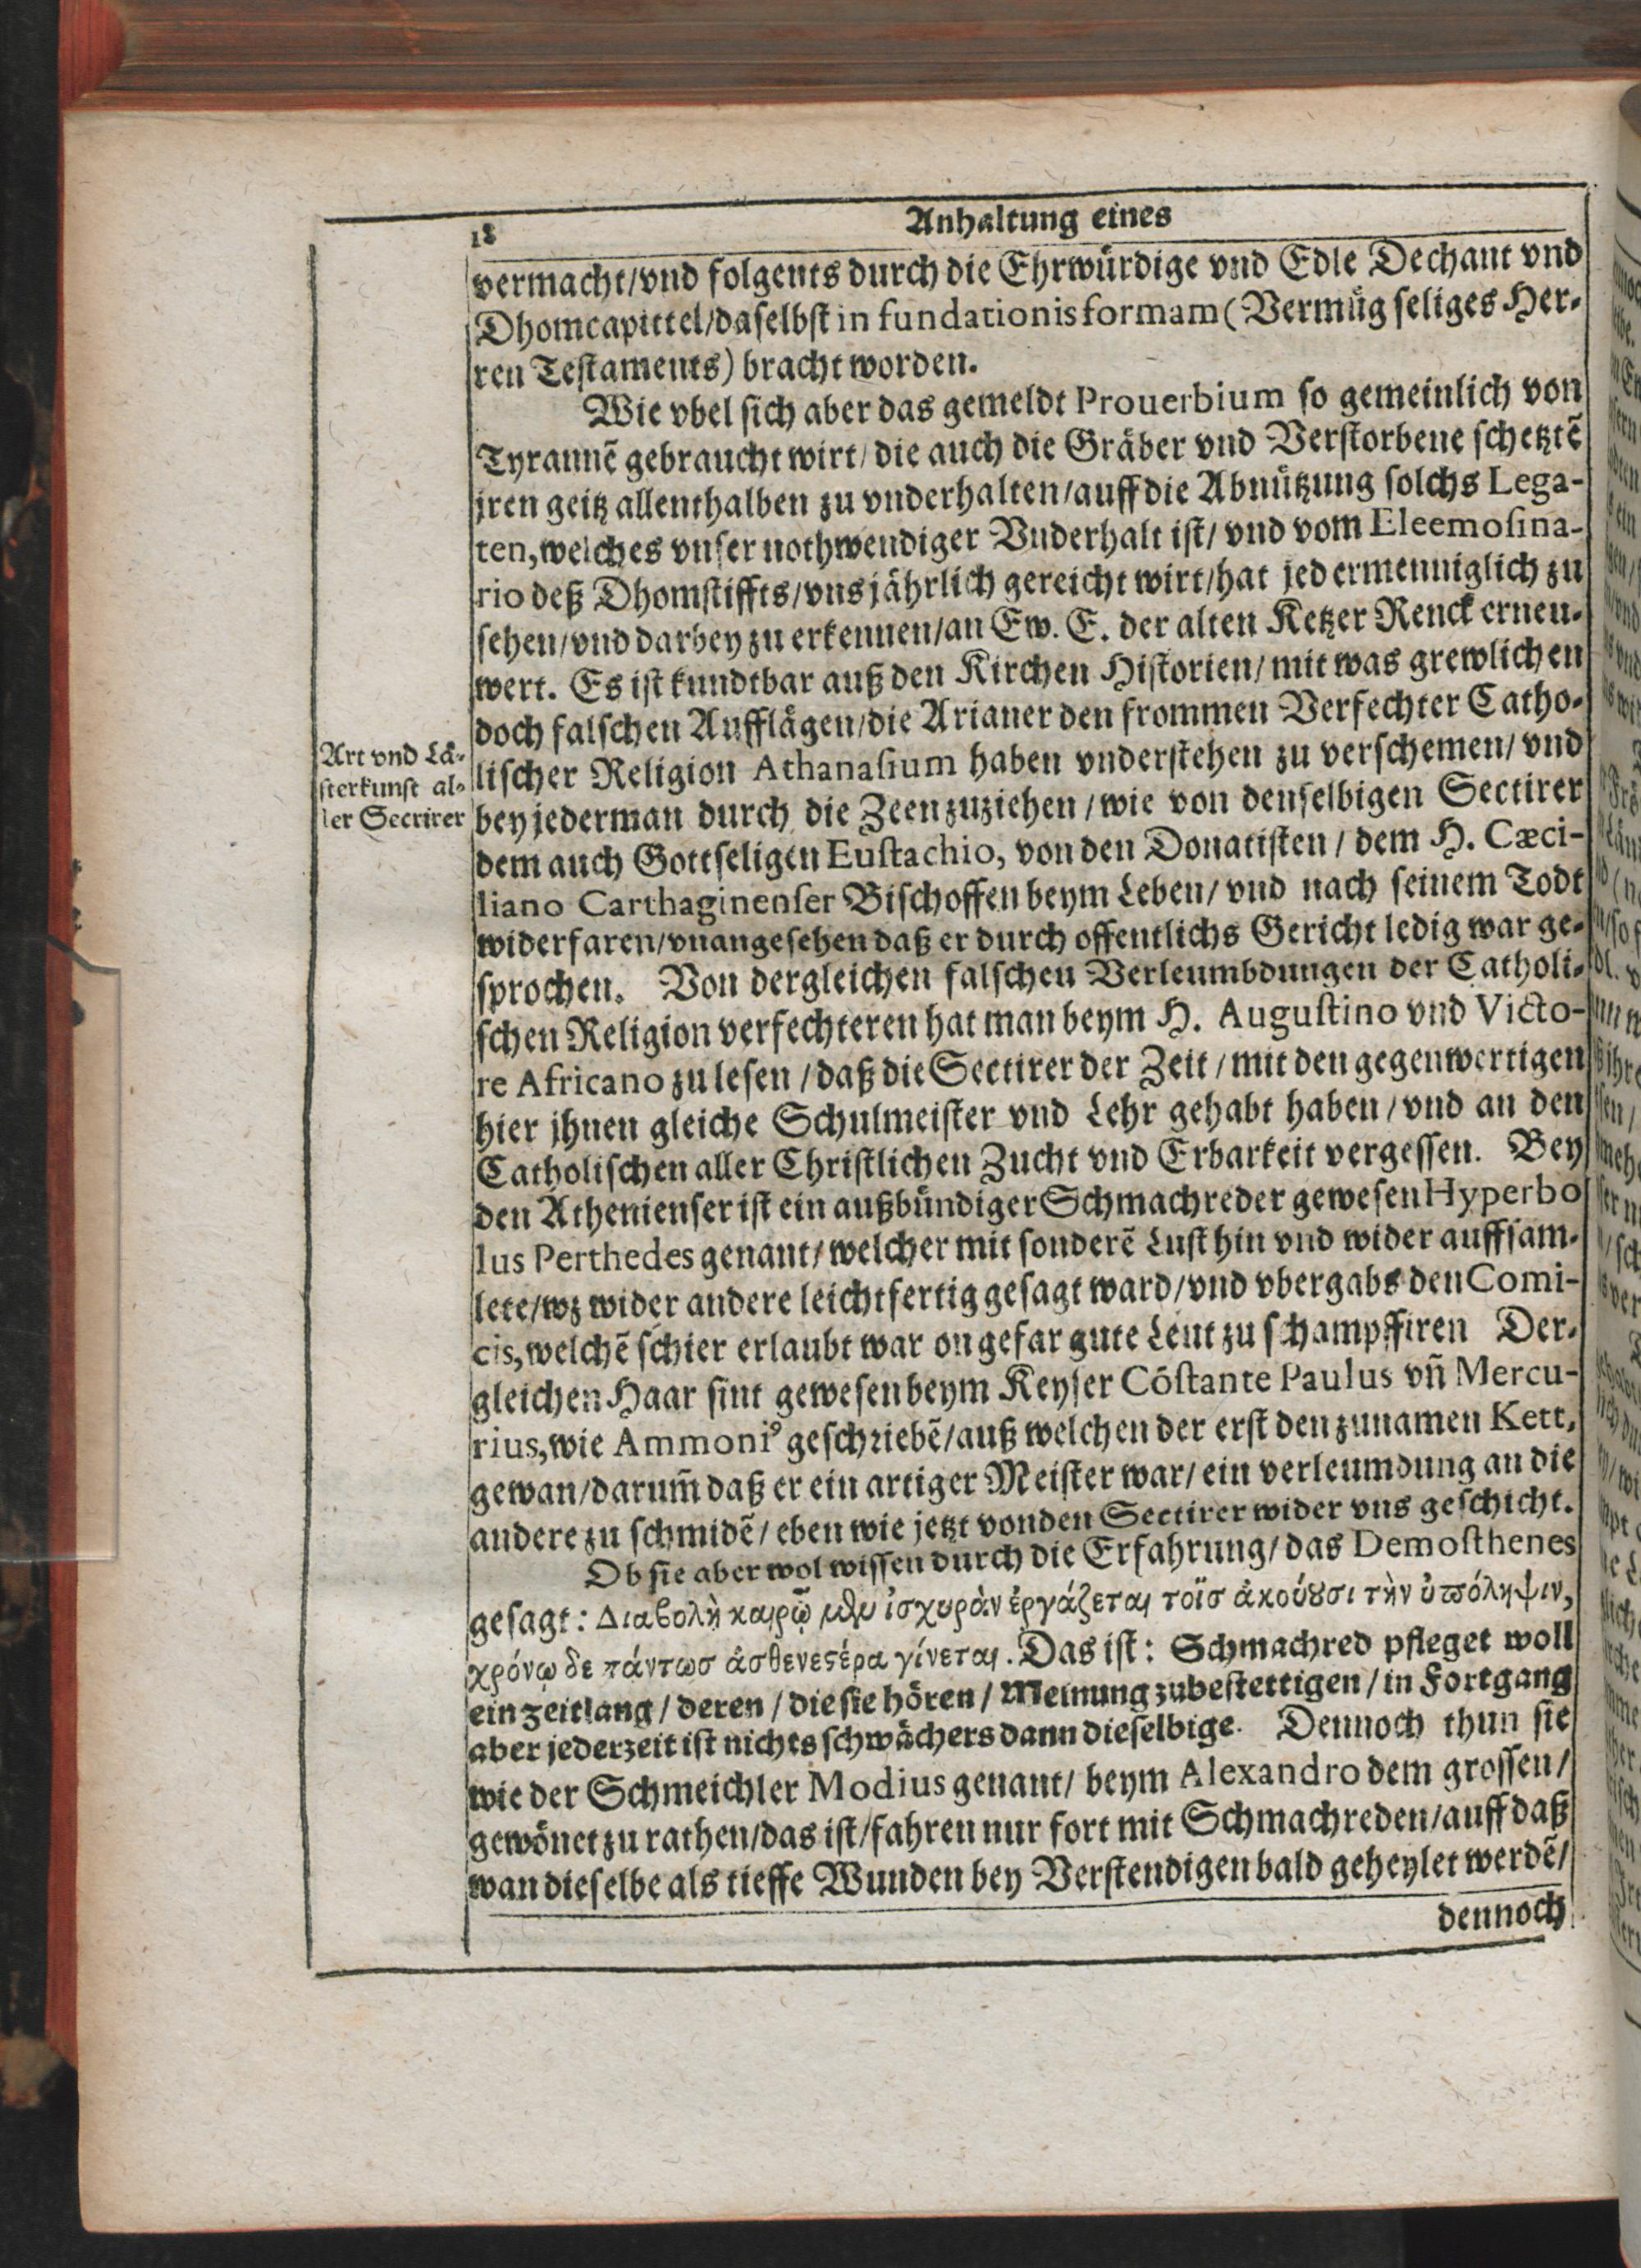 18
Anhaltung eines
vermacht/vnd folgents durch die Ehrwürdige vnd Edle Dechant vnd
Dhomcapittel/daselbst in fundationis formam (Vermüg seliges Her-
ren Testaments) bracht worden.
Wie vbel sich aber das gemeldt Prouerbium so gemeinlich von
Tyrannē gebraucht wirt/die auch die Gräber vnd Verstorbene schetztē
jren geitz allenthalben zu vnderhalten/auff die Abnützung solchs Lega-
ten, welches vnser nothwendiger Vnderhalt ist/ vnd vom Eleemosina-
rio deß Dhomstiffts/vns jährlich gereicht wirt/hat jedermenniglich zu
sehen/vnd darbey zu erkennen/an Ew. E. der alten Ketzer Renck erneu-
wert. Es ist kundtbar auß den Kirchen Historien/ mit was grewlichen
doch falschen Aufflägen/die Arianer den frommen Verfechter Catho-
lischer Religion Athanasium haben vnderstehen zu verschemen/ vnd
bey jederman durch die Zeen zuziehen / wie von denselbigen Sectirer
dem auch Gottseligen Eustachio, von den Donatisten / dem H. Cæci-
liano Carthaginenser Bischoffen beym Leben/ vnd nach seinem Todt
widerfaren/vnangesehen daß er durch offentlichs Gericht ledig war ge-
sprochen. Von dergleichen falschen Verleumbdungen der Catholi-
schen Religion verfechteren hat man beym H. Augustino vnd Victo-
re Africano zu lesen / daß die Sectirer der Zeit / mit den gegenwertigen
hier jhnen gleiche Schulmeister vnd Lehr gehabt haben / vnd an den
Catholischen aller Christlichen Zucht vnd Erbarkeit vergessen. Bey
den Athenienser ist ein außbündiger Schmachreder gewesen Hyperbo
lus Perthedes genant/ welcher mit sonderē Lust hin vnd wider auffsam-
lete/wz wider andere leichtfertig gesagt ward/vnd vbergabs den Comi-
cis, welchē schier erlaubt war on gefar gute Leut zu schampffiren Der-
gleichen Haar sint gewesen beym Keyser Cōstante Paulus vn̄ Mercu-
rius, wie Ammoniꝰ geschriebē/auß welchen der erst den zunamen Kett,
gewan/darum̄ daß er ein artiger Meister war/ ein verleumdung an die
andere zu schmidē/ eben wie jetzt von den Sectirer wider vns geschicht.
Ob sie aber wol wissen durch die Erfahrung/ das Demosthenes
gesagt: Διαβολὴ καιρῷ μὲν ἰσχυρὰν ἐργάζεται τοῖσ ἀκούουσι τὴν ὑπόληψιν,
χρόνῳ δε πάντωσ ἀσθενεστέρα γίνεται. Das ist: Schmachred pfleget woll
ein zeitlang/ deren / die sie hören / Meinung zubestettigen / in Fortgang
aber jederzeit ist nichts schwächers dann dieselbige. Dennoch thun sie
wie der Schmeichler Modius genant/ beym Alexandro dem grossen/
gewönet zu rathen/das ist/fahren nur fort mit Schmachreden/auff daß
wan dieselbe als tieffe Wunden bey Verstendigen bald geheylet werdē/
dennoch
Art vnd Lä-
sterkunst al-
ler Secrirer